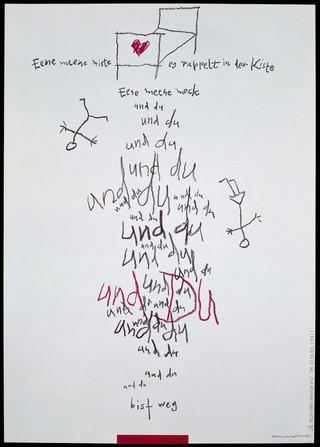 Eene meene miste es rappelt in der Kiste
Eene meene meck
und du
und du
und du
und du
und du
und du
und du
und du
und du
und du
und du
und du
und du
und du
und Du
und du
und du
und du
und du
und du
und du
und du
bist weg